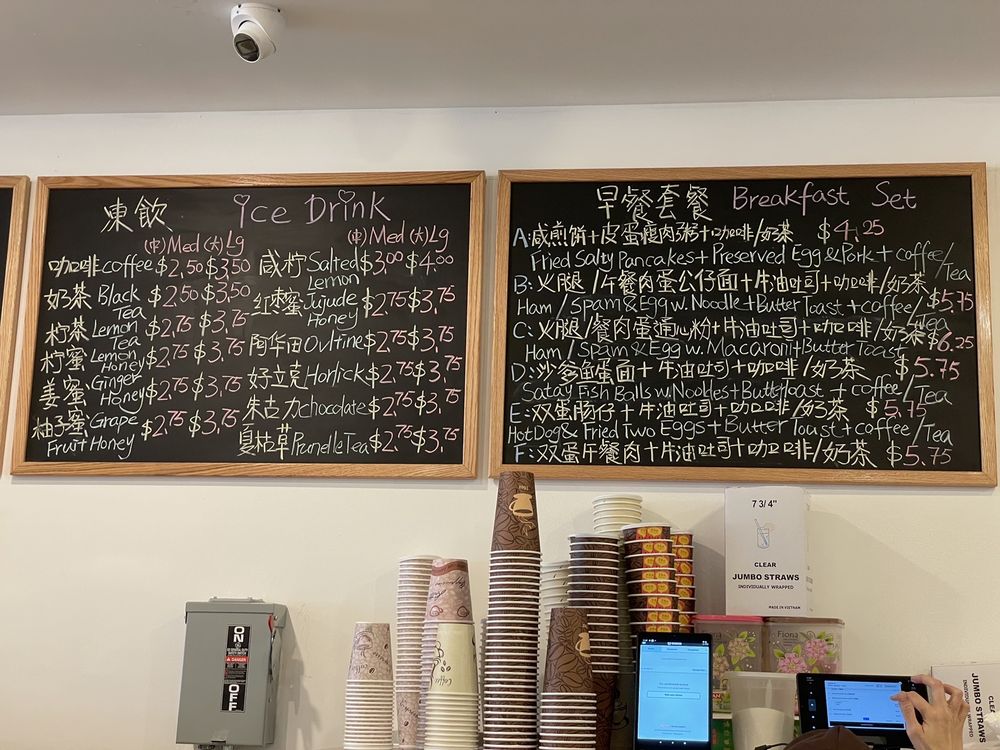 凍飲 ice Drink
(中) Med (大) Lg
咖啡 coffee $2.50 $3.50
奶茶 Black Tea $2.50 $3.50
柠茶 Lemon Tea $2.75 $3.75
柠蜜 Lemon Honey $2.75 $3.75
姜蜜 Ginger Honey $2.75 $3.75
柚子蜜 Grape Fruit Honey $2.75 $3.75
(中) Med (大) Lg
咸柠 Salted Lemon $3.00 $4.00
红枣蜜 Jujude Honey $2.75 $3.75
阿华田 Ovltine $2.75 $3.75
好立克 Horlick $2.75 $3.75
朱古力 chocolate $2.75 $3.75
夏枯草 Prunelle Tea $2.75 $3.75
早餐套餐 Breakfast Set
A: 咸煎餅+皮蛋瘦肉粥+咖啡/奶茶 $4.25
Fried Salty Pancakes + Preserved Egg & Pork + coffee/Tea
B: 火腿/午餐肉蛋公仔面+牛油吐司+咖啡/奶茶 $5.75
Ham / Spam & Egg w. Noodle + Butter Toast + coffee/Tea
C: 火腿/餐肉蛋通心粉+牛油吐司+咖啡/奶茶 $6.25
Ham / Spam & Egg w. Macaroni + Butter Toast
D: 沙爹鱼蛋面+牛油吐司+咖啡/奶茶 $5.75
Satay Fish Balls w. Nookles + Butte Toast + coffee/Tea
E: 双蛋肠仔+牛油吐司+咖啡/奶茶 $5.75
Hot Dog & Fried Two Eggs + Butter Toast + coffee/Tea
F: 双蛋午餐肉+牛油吐司+咖啡/奶茶 $5.75
7 3/4"
CLEAR
JUMBO STRAWS
INDIVIDUALLY WRAPPED
MADE IN VIETNAM
ON
DANGER
OFF
Coffee
Fiona
CLEAR
JUMBO STRAWS